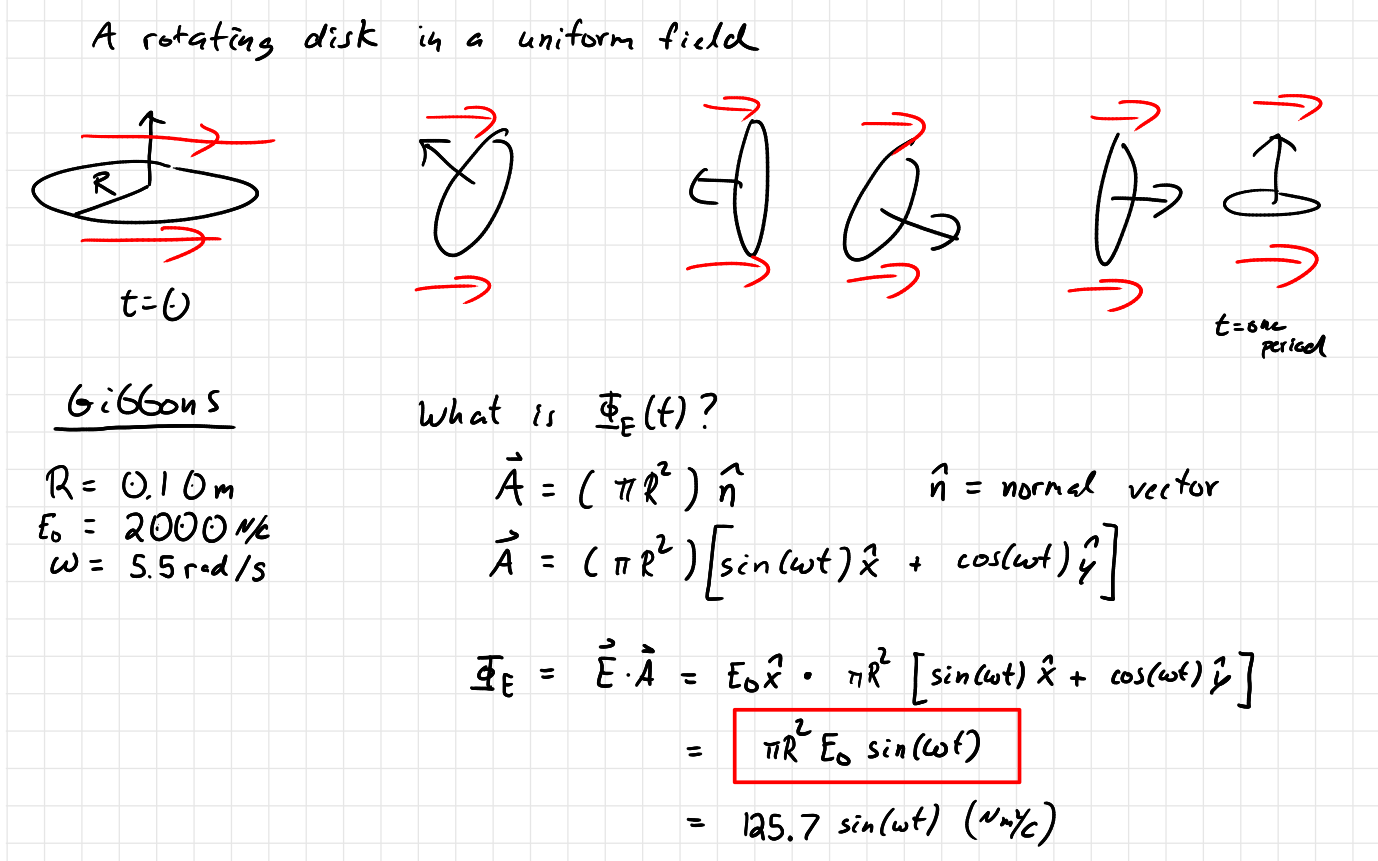 A rotating disk in a uniform field
R
t=0
t=one period
GiBBons
R = 0.10 m
E₀ = 2000 N/C
ω = 5.5 rad/s
What is Φ_E(t)?
A⃗ = (πR²) n̂
n̂ = normal vector
A⃗ = (πR²)[sin(ωt) x̂ + cos(ωt) ŷ]
Φ_E = E⃗·A⃗ = E₀x̂ · πR² [sin(ωt) x̂ + cos(ωt) ŷ]
= πR² E₀ sin(ωt)
= 125.7 sin(ωt) (Nm²/C)